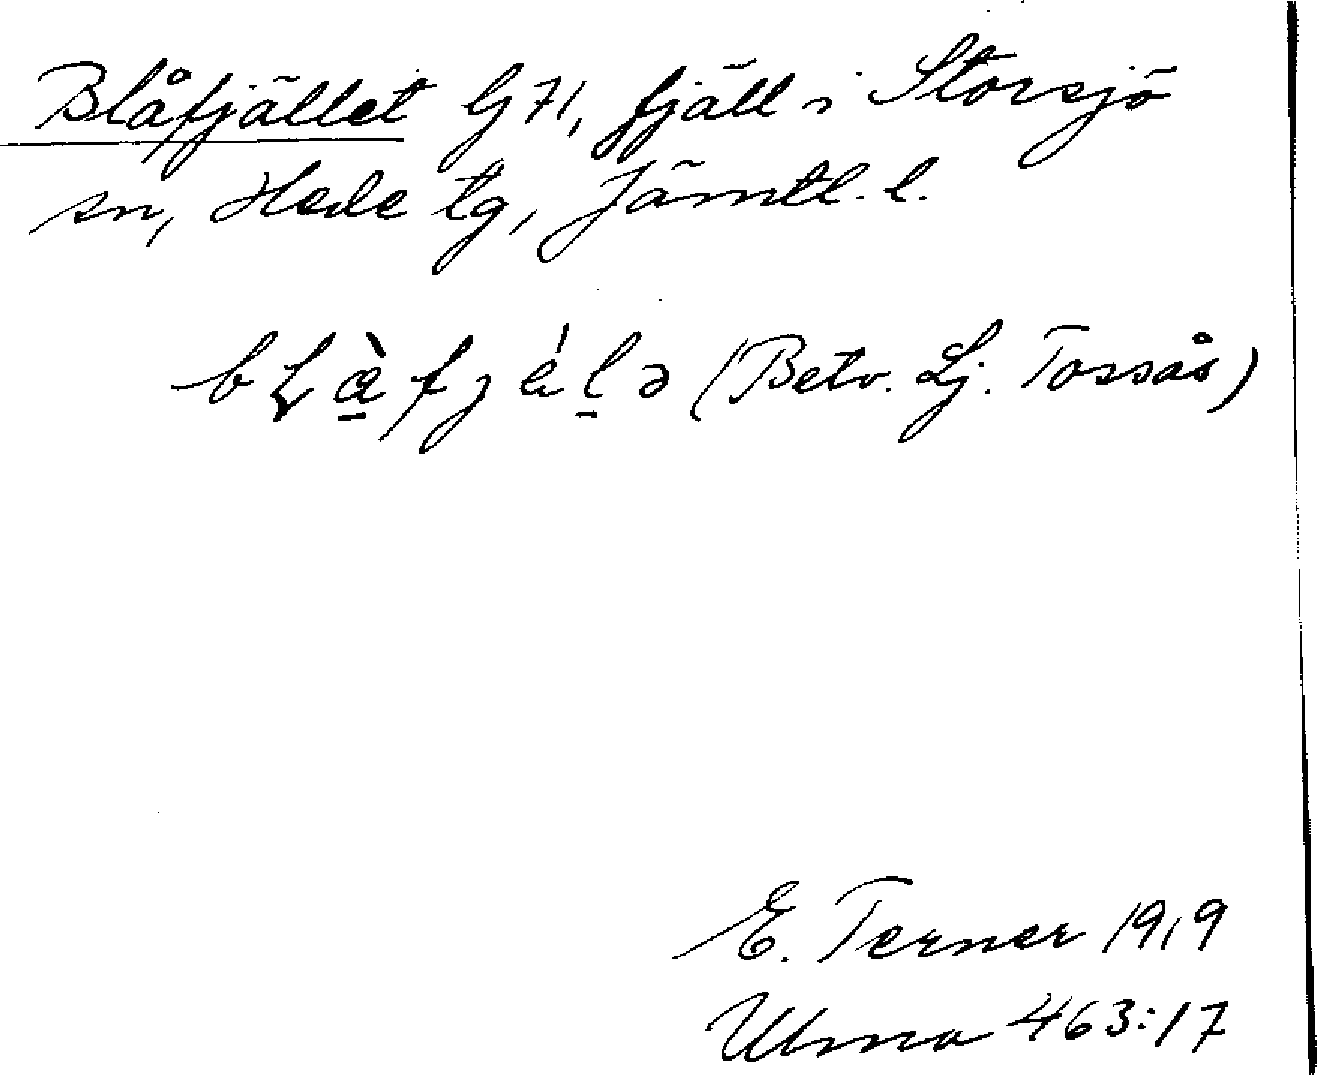 Blåfjället G 71, fjäll i Storsjö
sn, Hede tg, Jämtl. l.
bḷà̠fjäl̠ə (Betv. Lj. Tossås)
E. Terner 1919
Ulma 463:17